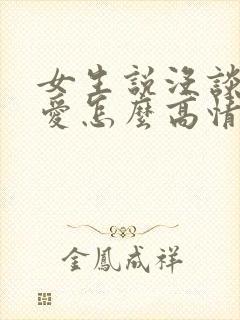 女生說沒談
愛怎麼高情
金鳳成祥